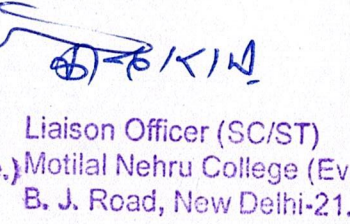 Liaison Officer (SC/ST)
.,) Motilal Nehru College (Ev
B. J. Road, New Delhi-21.